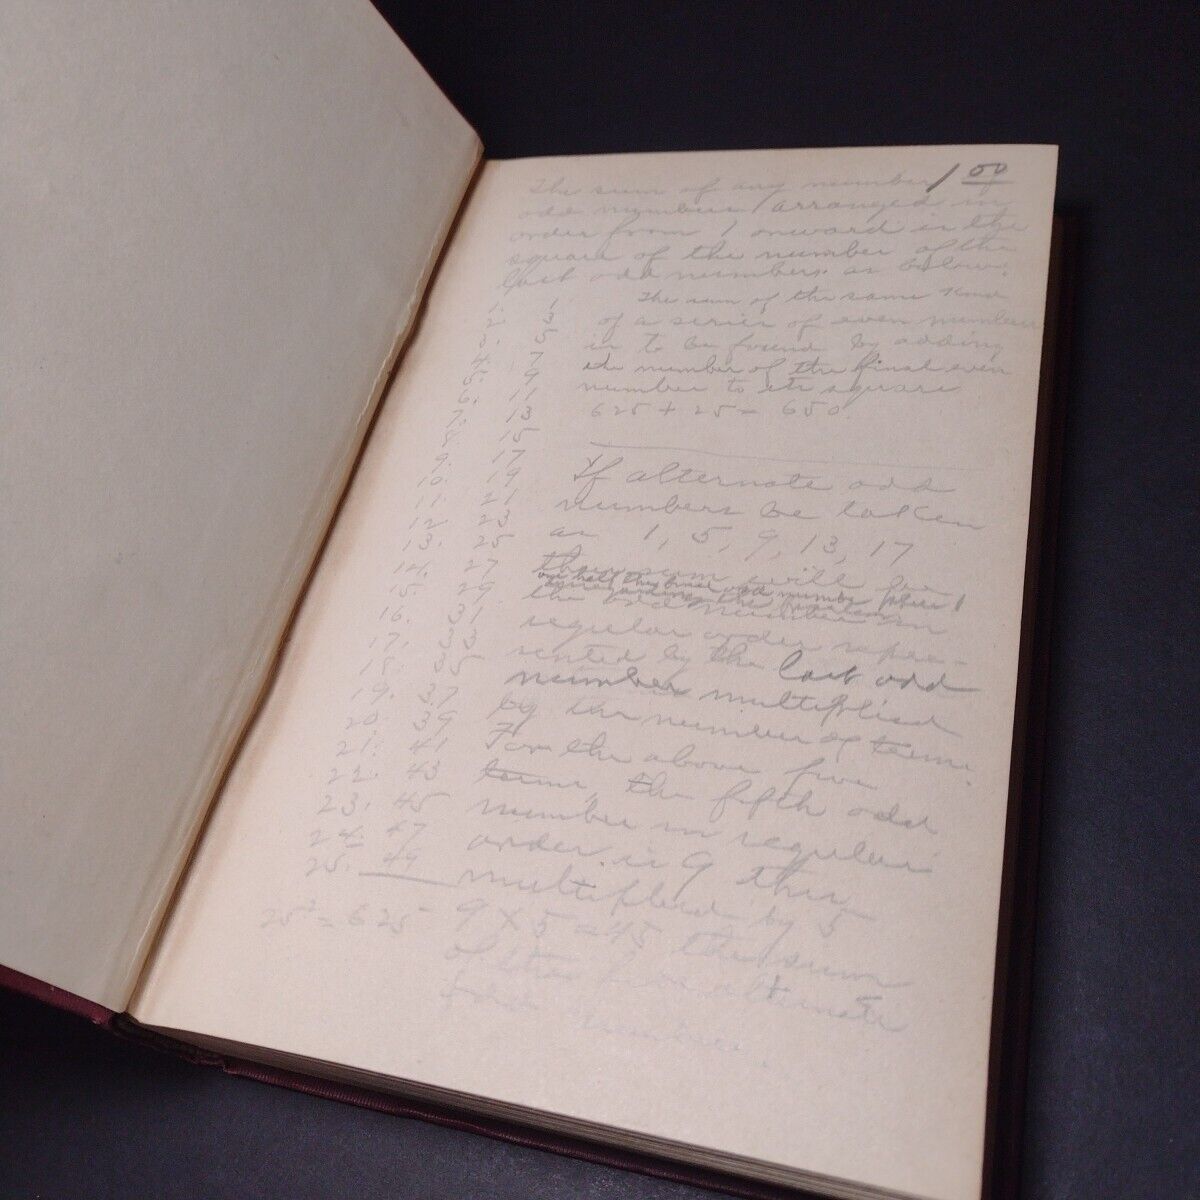 1 50
The sum of any number of
odd numbers arranged in
order from 1 onward is the
square of the number of the
last odd numbers as below.
1. 1
2. 3
3. 5
4. 7
5. 9
6. 11
7. 13
8. 15
9. 17
10. 19
11. 21
12. 23
13. 25
14. 27
15. 29
16. 31
17. 33
18. 35
19. 37
20. 39
21. 41
22. 43
23. 45
24. 47
25. 49
25² = 625
The sum of the same kind
of a series of even numbers
is to be found by adding
the number of the final even
number to its square
625 + 25 = 650.
If alternate odd
numbers be taken
as 1, 5, 9, 13, 17
their sum will be
one half the final odd number plus 1
the odd number in
regular order repre-
sented by the last odd
number multiplied
by the number of terms.
For the above five
terms, the fifth odd
number in regular
order is 9 this
multiplied by 5
9 X 5 = 45 the sum
of the five alternate
odd numbers.